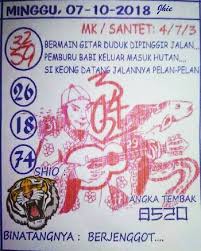 MINGGU, 07-10-2018 Jhie
MK / SANTET: 4/7/3
BERMAIN GITAR DUDUK DIPINGGIR JALAN...
PEMBURU BABI KELUAR MASUK HUTAN....
SI KEONG DATANG JALANNYA PELAN-PELAN
26
18
74
SHIO :
ANGKA TEMBAK
8520
BINATANGNYA : BERJENGGOT....